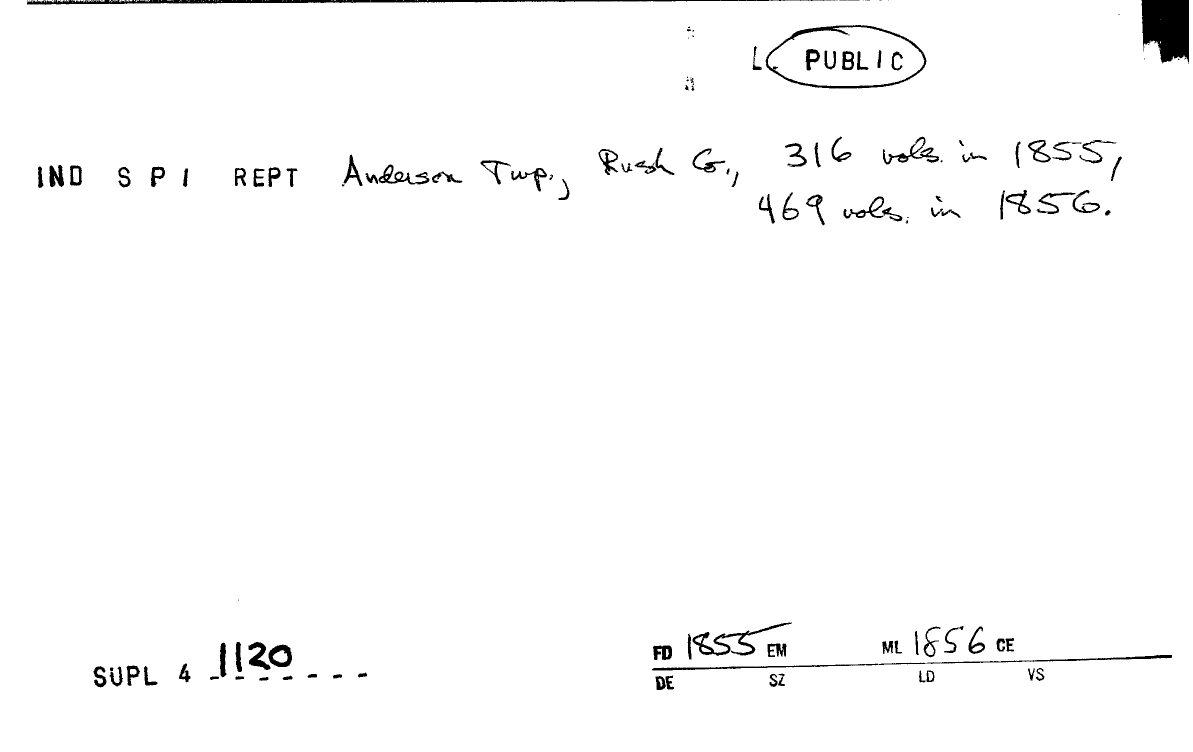 L. PUBLIC
IND S P I REPT Anderson Twp., Rush Co., 316 vols. in 1855,
469 vols. in 1856.
SUPL 4 1120
FD 1855 EM ML 1856 CE
DE SZ LD VS